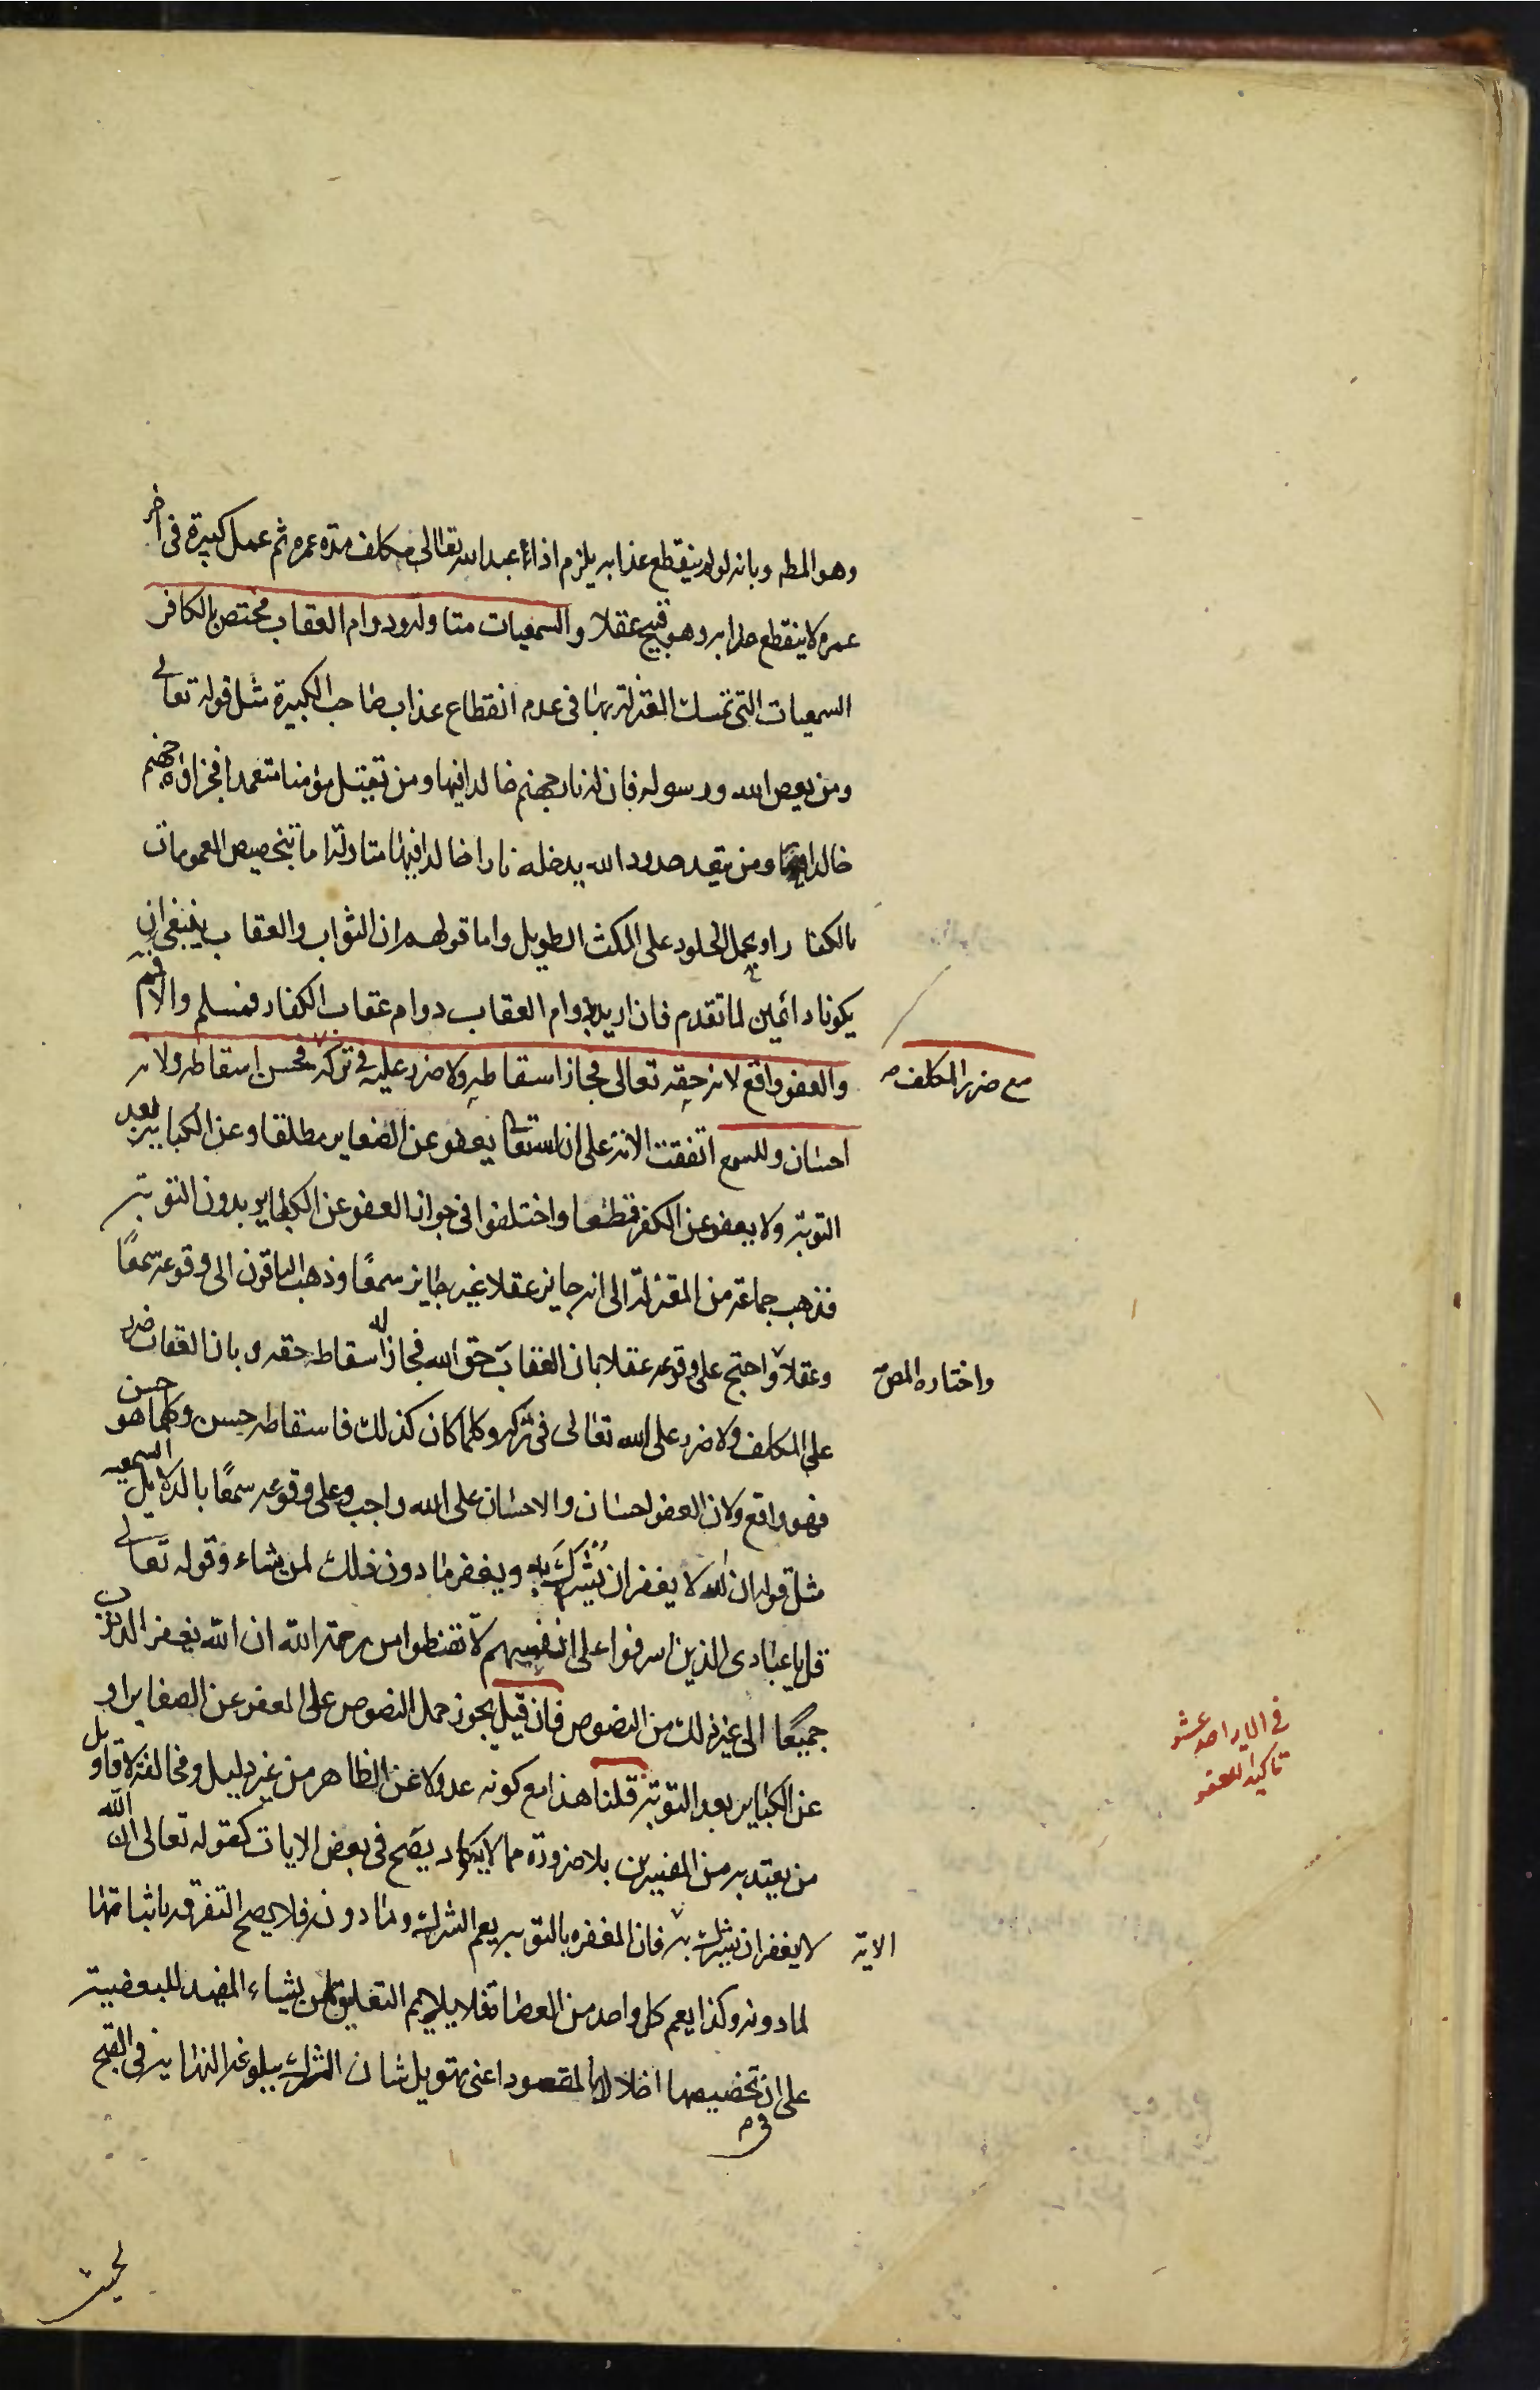 وهو المطه وبانه لو لم ينقطع عذابه يلزم اذا عبد الله تعالى مكلف مدة عمره ثم عمل كبيرة فى اخر
عمره لا ينقطع عذابه وهو قبيح عقلا والسمعيات متاولة ودوام العقاب مختص بالكافر
السمعيات التى تمسك المعتزلة بها فى عدم انقطاع عذاب صاحب الكبيرة مثل قوله تعالى
ومن يعص الله ورسوله فان له نار جهنم خالدا فيها ومن يقتل مؤمنا متعمدا فجزاؤه جهنم
خالدا فيها ومن يتعد حدود الله يدخله نارا خالدا فيها متاولة اما بتخصيص العمومات
بالكفار او بحمل الخلود على المكث الطويل واما قولهم ان الثواب والعقاب ينبغى ان
يكونا دائمين لما تقدم فان اريد بدوام العقاب دوام عقاب الكفار فمسلم والا فم
والعفو واقع لانه حقه تعالى فجاز اسقاطه ولا ضرر عليه فى تركه فحسن اسقاطه ولانه
مع ضرر المكلف
احسان وللسمع اتفقت الامة على ان الله تعالى يعفو عن الصغاير مطلقا وعن الكباير بعد
التوبة ولا يعفو عن الكفر قطعا واختلفوا فى جواز العفو عن الكباير بدون التوبة
فذهب جماعة من المعتزلة الى انه جايز عقلا غير جايز سمعًا وذهب الباقون الى وقوعه سمعًا
وعقلا واحتج على وقوعه عقلا بان العقاب حق الله فجاز له اسقاط حقه وبان العقاب ضرر
واختاره المص
على المكلف ولا ضرر على الله تعالى فى تركه وكلما كان كذلك فاسقاطه حسن وكلما هو حسن
فهو واقع ولان العفو احسان والاحسان على الله واجب وعلى وقوعه سمعًا بالدلايل السمعيه
مثل قوله ان الله لا يغفر ان يُشرَكَ به ويغفر ما دون ذلك لمن يشاء وقوله تعالى
قل يا عبادى الذين اسرفوا على انفسهم لا تقنطوا من رحمة الله ان الله يغفر الذنوب
جميعًا الى غير ذلك من النصوص فان قيل يجوز حمل النصوص على العفو عن الصغاير او
عن الكباير بعد التوبة قلنا هذا مع كونه عدولا عن الظاهر من غير دليل ومخالفة لاقاويل
من يعتد به من المفسرين بلا ضرورة مما لا يكاد يصح فى بعض الايات كقوله تعالى ان الله
لا يغفر ان يشرك به فان المغفره بالتوبه يعم الشرك وما دونه فلا يصح التفرقه باثباتها
الاية
لما دونه وكذا يعم كل واحد من العصاة فلا يلايم التعليق لمن يشاء المفيد للبعضية
على ان فى تخصيصها اخلالا بالمقصود اعنى تهويل شان الشرك ببلوغه النهاية فى القبح